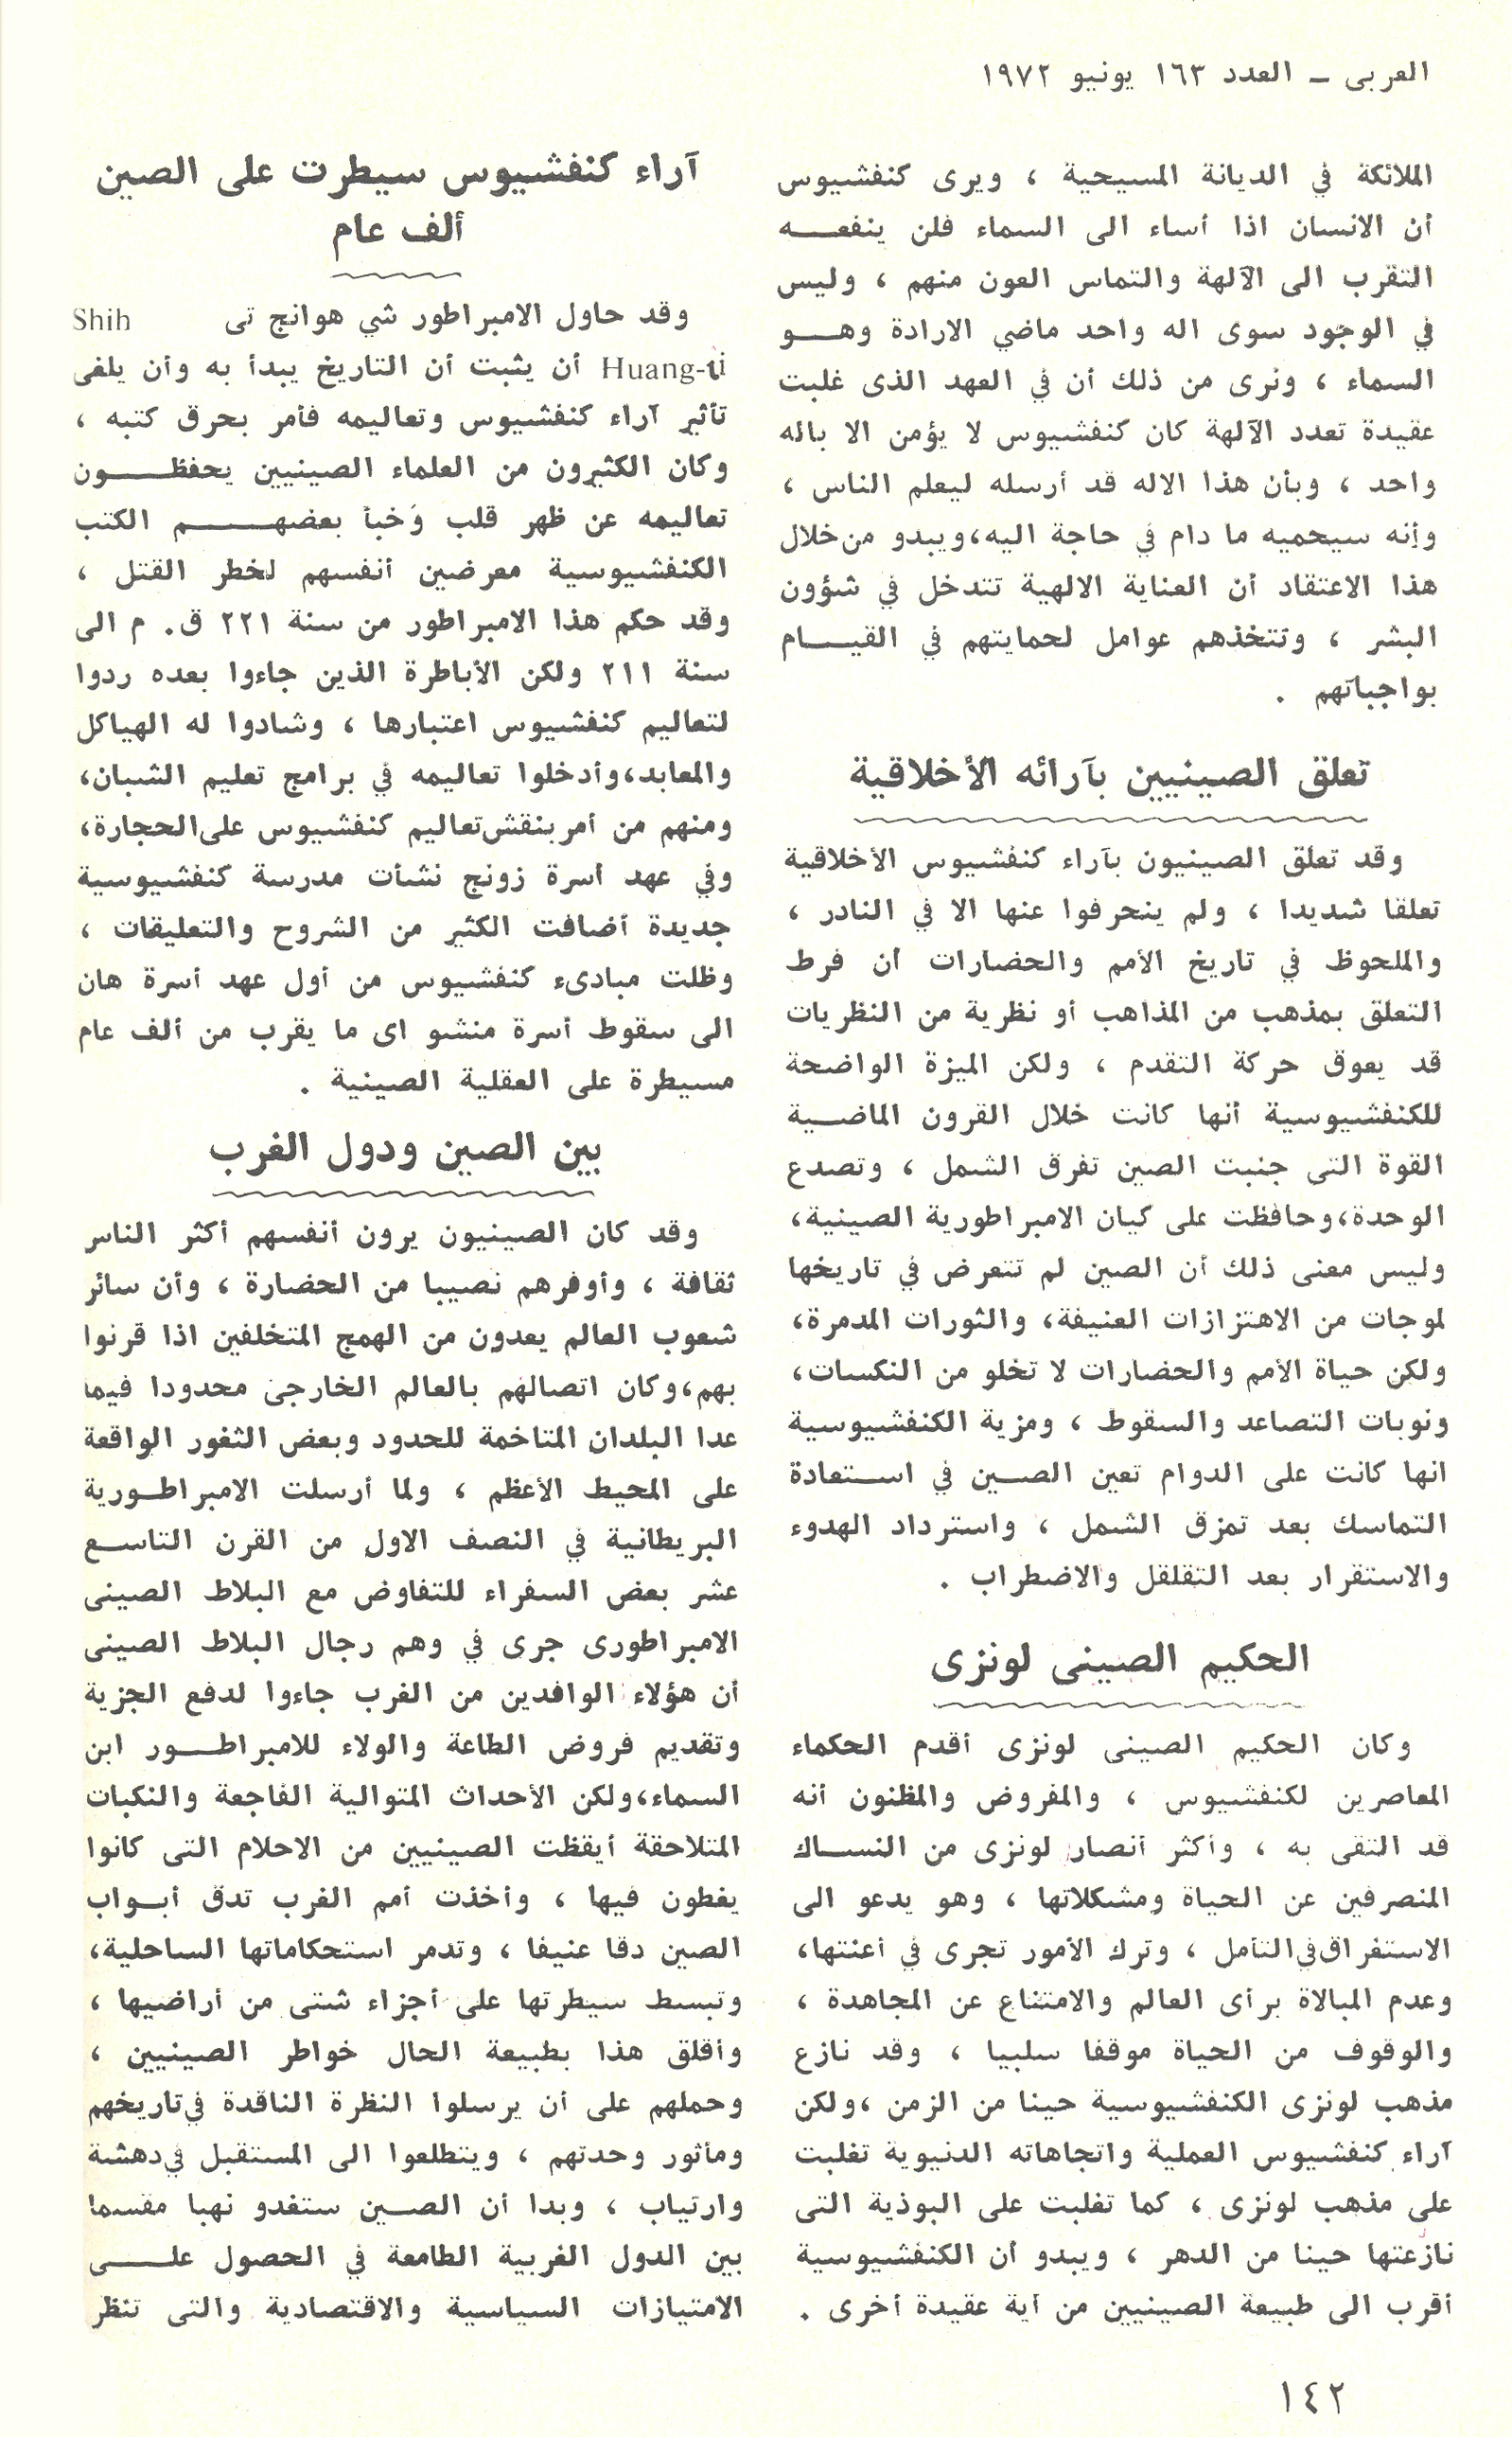 العربى ــ العدد ١٦٣ يونيو ١٩٧٢
الملائكة في الديانة المسيحية ، ويرى كنفشيوس
أن الانسان اذا أساء الى السماء فلن ينفعــه
التقرب الى الآلهة والتماس العون منهم ، وليس
في الوجود سوى اله واحد ماضي الارادة وهــو
السماء ، ونرى من ذلك أن في العهد الذى غلبت
عقيدة تعدد الآلهة كان كنفشيوس لا يؤمن الا باله
واحد ، وبأن هذا الاله قد أرسله ليعلم الناس ،
وأنه سيحميه ما دام في حاجة اليه، ويبدو من خلال
هذا الاعتقاد أن العناية الالهية تتدخل في شؤون
البشر ، وتتخذهم عوامل لحمايتهم في القيــام
بواجباتهم .
تعلق الصينيين بآرائه الأخلاقية
وقد تعلق الصينيون بآراء كنفشيوس الأخلاقية
تعلقا شديدا ، ولم ينحرفوا عنها الا في النادر ،
والملحوظ في تاريخ الأمم والحضارات أن فرط
التعلق بمذهب من المذاهب أو نظرية من النظريات
قد يعوق حركة التقدم ، ولكن الميزة الواضحة
للكنفشيوسية أنها كانت خلال القرون الماضـية
القوة التى جنبت الصين تفرق الشمل ، وتصدع
الوحدة، وحافظت على كيان الامبراطورية الصينية،
وليس معنى ذلك أن الصين لم تتعرض في تاريخها
لموجات من الاهتزازات العنيفة، والثورات المدمرة،
ولكن حياة الأمم والحضارات لا تخلو من النكسات،
ونوبات التصاعد والسقوط ، ومزية الكنفشيوسية
انها كانت على الدوام تعين الصــين في اسـتعادة
التماسك بعد تمزق الشمل ، واسترداد الهدوء
والاستقرار بعد التقلقل والاضطراب .
الحكيم الصينى لونزى
وكان الحكيم الصينى لونزى أقدم الحكماء
المعاصرين لكنفشيوس ، والمفروض والمظنون أنه
قد التقى به ، وأكثر أنصار لونزى من النسـاك
المنصرفين عن الحياة ومشكلاتها ، وهو يدعو الى
الاستغراق في التأمل ، وترك الأمور تجرى في أعنتها،
وعدم المبالاة برأى العالم والامتناع عن المجاهدة ،
والوقوف من الحياة موقفا سلبيا ، وقد نازع
مذهب لونزى الكنفشيوسية حينا من الزمن ، ولكن
آراء كنفشيوس العملية واتجاهاته الدنيوية تغلبت
على مذهب لونزى ، كما تغلبت على البوذية التى
نازعتها حينا من الدهر ، ويبدو أن الكنفشيوسية
أقرب الى طبيعة الصينيين من أية عقيدة أخرى .
آراء كنفشيوس سيطرت على الصين
ألف عام
وقد حاول الامبراطور شي هوانج تى Shih
Huang-ti أن يثبت أن التاريخ يبدأ به وأن يلغى
تأثير آراء كنفشيوس وتعاليمه فأمر بحرق كتبه ،
وكان الكثيرون من العلماء الصينيين يحفظــون
تعاليمه عن ظهر قلب وَخبأ بعضهــم الكتب
الكنفشيوسية معرضين أنفسهم لخطر القتل ،
وقد حكم هذا الامبراطور من سنة ٢٢١ ق. م الى
سنة ٢١١ ولكن الأباطرة الذين جاءوا بعده ردوا
لتعاليم كنفشيوس اعتبارها ، وشادوا له الهياكل
والمعابد، وأدخلوا تعاليمه في برامج تعليم الشبان،
ومنهم من أمر بنقش تعاليم كنفشيوس على الحجارة،
وفي عهد أسرة زونج نشأت مدرسة كنفشيوسية
جديدة أضافت الكثير من الشروح والتعليقات ،
وظلت مبادىء كنفشيوس من أول عهد أسرة هان
الى سقوط أسرة منشو اى ما يقرب من ألف عام
مسيطرة على العقلية الصينية .
بين الصين ودول الغرب
وقد كان الصينيون يرون أنفسهم أكثر الناس
ثقافة ، وأوفرهم نصيبا من الحضارة ، وأن سائر
شعوب العالم يعدون من الهمج المتخلفين اذا قرنوا
بهم، وكان اتصالهم بالعالم الخارجى محدودا فيما
عدا البلدان المتاخمة للحدود وبعض الثغور الواقعة
على المحيط الأعظم ، ولما أرسلت الامبراطـورية
البريطانية في النصف الاول من القرن التاسـع
عشر بعض السفراء للتفاوض مع البلاط الصينى
الامبراطورى جرى في وهم رجال البلاط الصينى
أن هؤلاء الوافدين من الغرب جاءوا لدفع الجزية
وتقديم فروض الطاعة والولاء للامبراطــور ابن
السماء، ولكن الأحداث المتوالية الفاجعة والنكبات
المتلاحقة أيقظت الصينيين من الاحلام التى كانوا
يغطون فيها ، وأخذت أمم الغرب تدق أبـواب
الصين دقا عنيفا ، وتدمر استحكاماتها الساحلية،
وتبسط سيطرتها على أجزاء شتى من أراضيها ،
وأقلق هذا بطبيعة الحال خواطر الصينيين ،
وحملهم على أن يرسلوا النظرة الناقدة في تاريخهم
ومأثور وحدتهم ، ويتطلعوا الى المستقبل في دهشة
وارتياب ، وبدا أن الصــين ستغدو نهبا مقسما
بين الدول الغربية الطامعة في الحصول علــى
الامتيازات السياسية والاقتصادية والتى تنظر
١٤٢